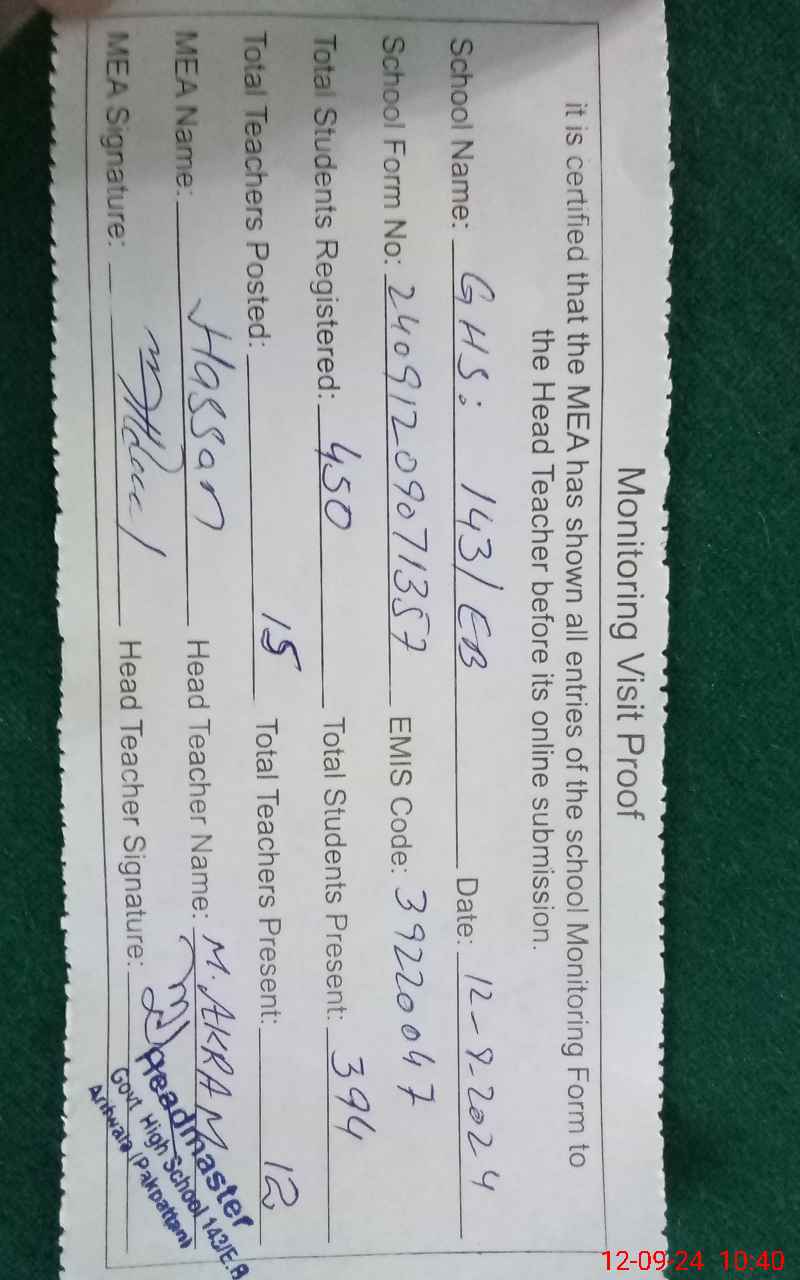 Monitoring Visit Proof
it is certified that the MEA has shown all entries of the school Monitoring Form to
the Head Teacher before its online submission.
School Name: GHS: 143/EB Date: 12-9-2024
School Form No: 2409120971357 EMIS Code: 39220047
Total Students Registered: 450 Total Students Present: 394
Total Teachers Posted: 15 Total Teachers Present: 12
MEA Name: Hassan Head Teacher Name: M. AKRAM
MEA Signature: Head Teacher Signature:
Headmaster
Govt High School 143/E.B
Arifwala (Pakpattan)
12-09-24 10:40